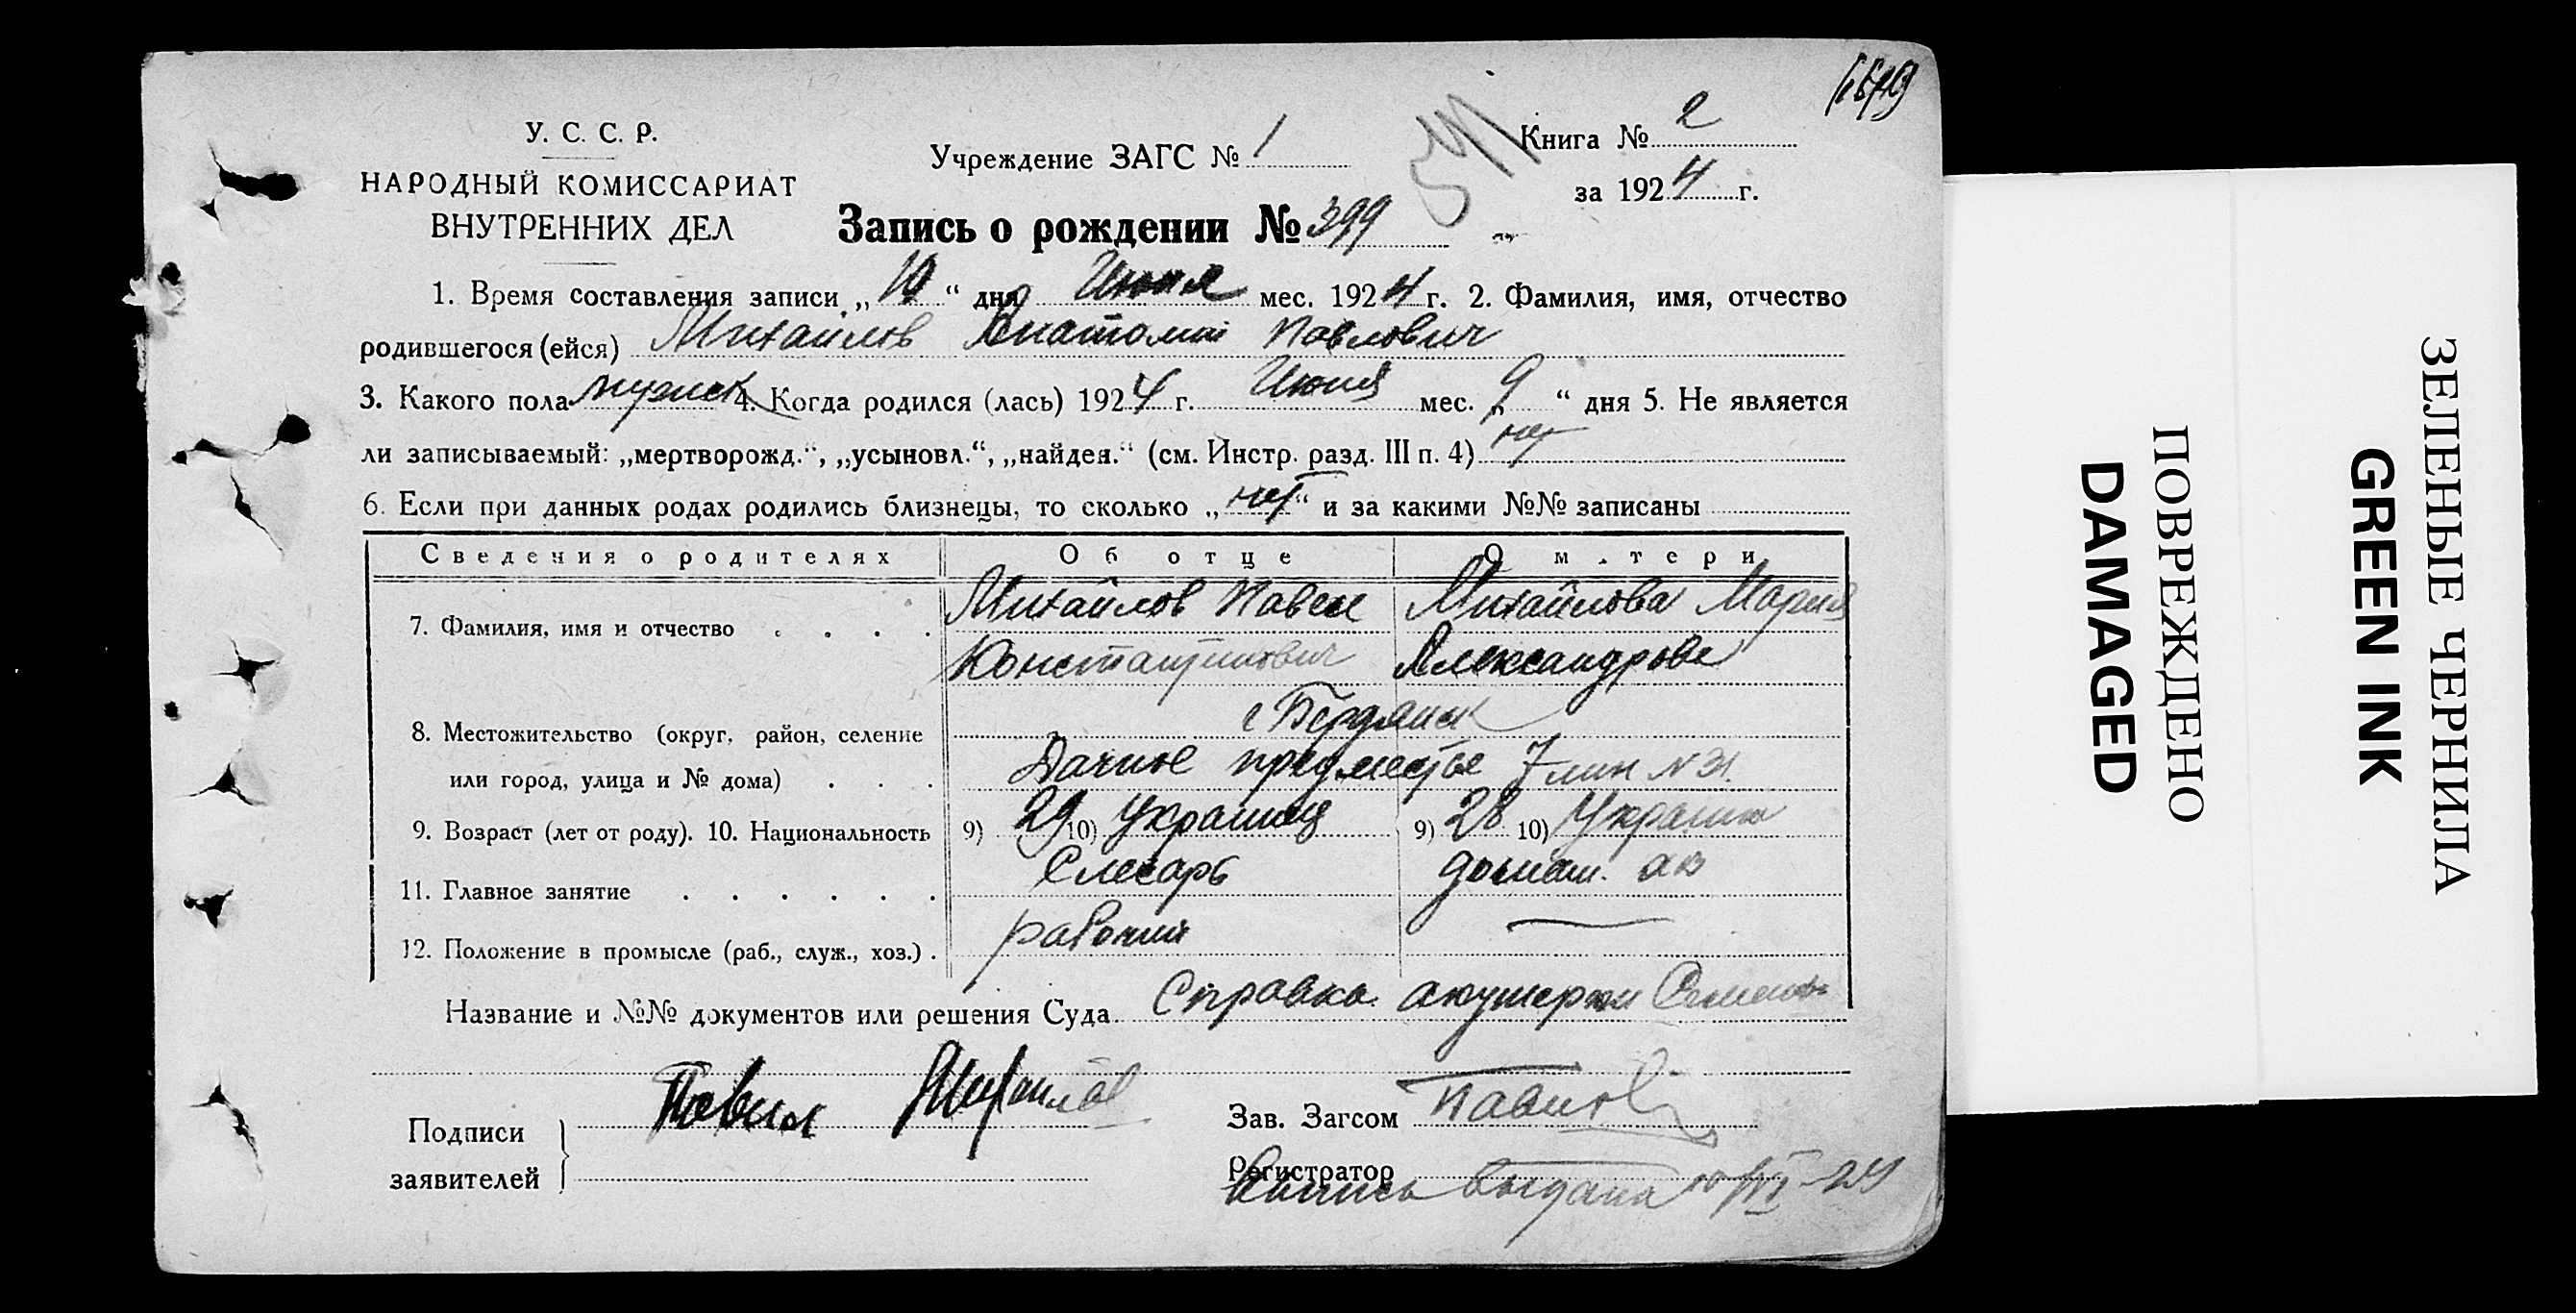 У. С. С. Р.
НАРОДНЫЙ КОМИССАРИАТ
ВНУТРЕННИХ ДЕЛ
Учреждение ЗАГС № 1
Книга № 2
за 1924 г.
Запись о рождении № 399
1. Время составления записи „10“ дня Июня мес. 1924 г. 2. Фамилия, имя, отчество
родившегося (ейся) Михайлов Анатолий Павлович
3. Какого пола мужск 4. Когда родился (лась) 1924 г. Июня мес. „9“ дня 5. Не является
ли записываемый: „мертворожд.“, „усыновл.“, „найден.“ (см. Инстр. разд. III п. 4) нет
6. Если при данных родах родились близнецы, то сколько „нет“ и за какими №№ записаны
Сведения о родителях Об отце О м.тери
7. Фамилия, имя и отчество Михайлов Павел Михайлова Мария
Константинович Александровн
г Бердянск
8. Местожительство (округ, район, селение
или город, улица и № дома) Дачное предместье 7 лин N 31.
9. Возраст (лет от роду). 10. Национальность 9) 29 10) Украинец 9) 28 10) Украинк
11. Главное занятие Слесарь домаш.
12. Положение в промысле (раб., служ., хоз.) рабочий
Название и №№ документов или решения Суда Справка акушерки
Подписи
заявителей
Павел Михайлов
Зав. Загсом
Регистратор
Выпись выдана 10/VI-24
ПОВРЕЖДЕНО
DAMAGED
ЗЕЛЕНЫЕ ЧЕРНИЛА
GREEN INK